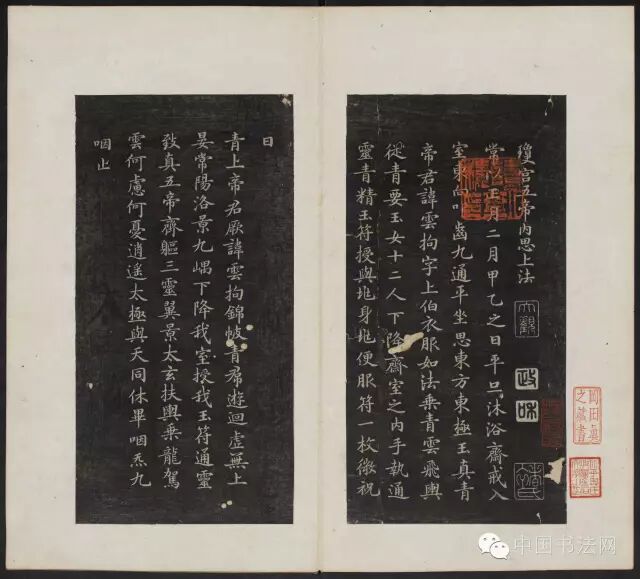 瓊宮五帝內思上法
常以正月二月甲乙之日平旦沐浴齋戒入
室東向叩齒九通平坐思東方東極玉真青
帝君諱雲拘字上伯衣服如法乘青雲飛輿
從青要玉女十二人下降齋室之內手執通
靈青精玉符授與兆身兆便服符一枚微祝
曰
青上帝君厥諱雲拘錦帔青帬遊迴虛無上
晏常陽洛景九嵎下降我室授我玉符通靈
致真五帝齊軀三靈翼景太玄扶輿乘龍駕
雲何慮何憂逍遥太極與天同休畢咽炁九
咽止
大觀
政和
岡田真
之蔵書
中国书法网